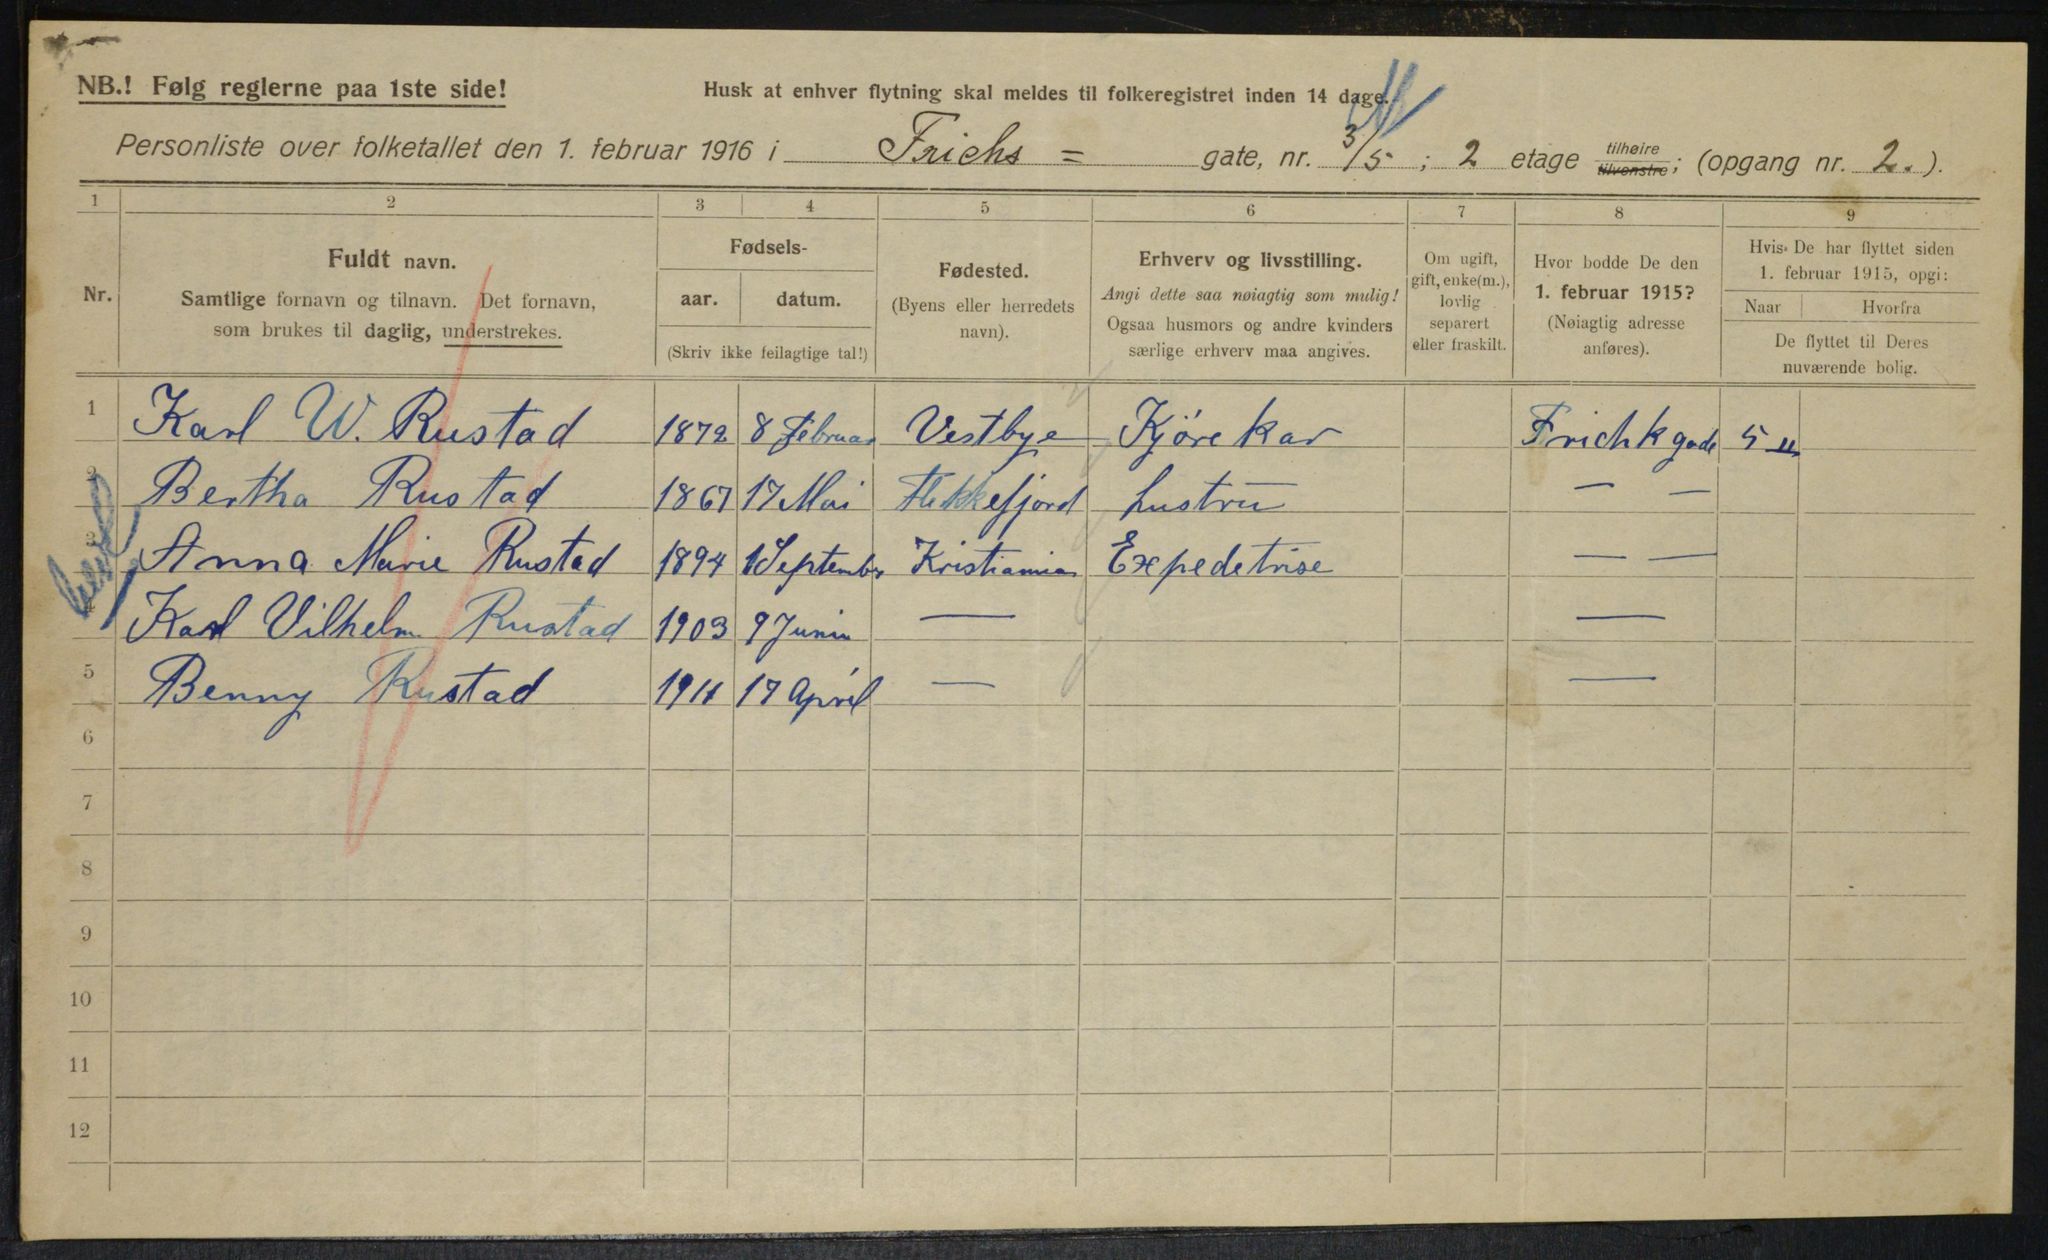 NB.! Følg reglerne paa 1ste side!
Husk at enhver flytning skal meldes til folkeregistret inden 14 dage.
Personliste over folketallet den 1. februar 1916 i Frichs = gate, nr. 3/5 ; 2 etage tilhøire tilvenstre; (opgang nr. 2. ).
1 2 3 4 5 6 7 8 9
Nr.
Fuldt navn.
Samtlige fornavn og tilnavn. Det fornavn,
som brukes til daglig, understrekes.
Fødsels-
aar. datum.
(Skriv ikke feilagtige tal!)
Fødested.
(Byens eller herredets
navn).
Erhverv og livsstilling.
Angi dette saa nøiagtig som mulig!
Ogsaa husmors og andre kvinders
særlige erhverv maa angives.
Om ugift,
gift, enke(m.),
lovlig
separert
eller fraskilt.
Hvor bodde De den
1. februar 1915?
(Nøiagtig adresse
anføres).
Hvis De har flyttet siden
1. februar 1915, opgi:
Naar Hvorfra
De flyttet til Deres
nuværende bolig.
1 Karl W. Rustad 1872 8 Februar Vestbye Kjørekar Frichkgade 5 II
2 Bertha Rustad 1867 17 Mai Flekkefjord hustru — —
3 Anna Marie Rustad 1894 1 September Kristiania Expedetrise — —
4 Karl Vilhelm Rustad 1903 9 Juni — —
5 Benny Rustad 1911 17 April — —
6
7
8
9
10
11
12